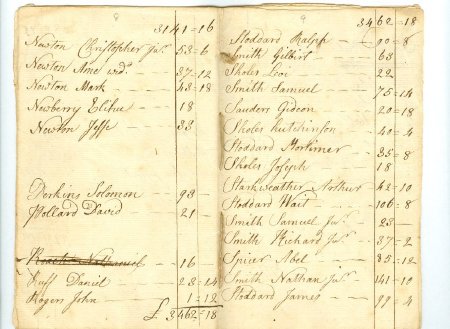 3141=16
Newton Christopher Jur. 53=6
Newton Ame wd. 37=12
Newton Mark 48=18
Newberry Elihue 18
Newton Jesse 33
Perkins Solomon 93
Pollard David 21
Nathaniel 16
Ruff Daniel 28=14
Rogers John 1=12
£ 3462=18
3462=18
Stoddard Ralph 90=8
Smith Gilbirt 63
Sholes Levi 22
Smith Samuel 75=14
Sanders Gideon 20=18
Sholes Hutchinson 40=4
Stoddard Mortimer 35=8
Sholes Joseph 18
Starkweather Arthur 42=10
Stoddard Wait 106=8
Smith Samuel Jur. 23
Smith Richard Jur. 37=2
Spicer Abel 85=12
Smith Nathan Jur. 141=10
Stoddard James 99=4